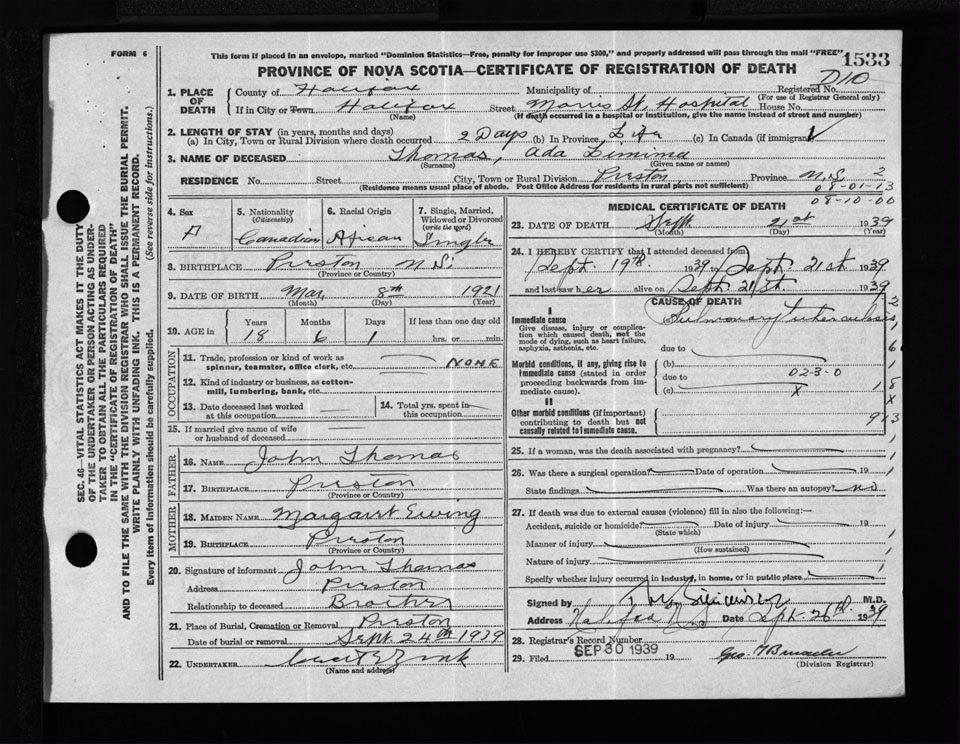 FORM 6
This form if placed in an envelope, marked "Dominion Statistics—Free, penalty for improper use $300," and properly addressed will pass through the mail "FREE"
1533
PROVINCE OF NOVA SCOTIA—CERTIFICATE OF REGISTRATION OF DEATH
D10
1. PLACE OF DEATH
County of Halifax Municipality of Registered No.
(For use of Registrar General only)
If in City or Town Halifax Street Morris St. Hospital House No.
(Name) (If death occurred in a hospital or institution, give the name instead of street and number)
2. LENGTH OF STAY (in years, months and days)
(a) In City, Town or Rural Division where death occurred 2 Days (b) In Province Life (c) In Canada (if immigrant)
3. NAME OF DECEASED Thomas, Ada
(Surname) (Given name or names)
RESIDENCE No. Street City, Town or Rural Division Preston Province N.S. 2
(Residence means usual place of abode. Post Office Address for residents in rural parts not sufficient)
08-01-13
08-10-00
4. Sex
F
5. Nationality (Citizenship)
Canadian
6. Racial Origin
African
7. Single, Married, Widowed or Divorced (write the word)
Single
8. BIRTHPLACE Preston N.S.
(Province or Country)
9. DATE OF BIRTH Mar 8th 1921
(Month) (Day) (Year)
10. AGE in
Years Months Days If less than one day old
18 6 1 hrs. or min.
OCCUPATION
11. Trade, profession or kind of work as spinner, teamster, office clerk, etc. NONE
12. Kind of industry or business, as cotton-mill, lumbering, bank, etc.
13. Date deceased last worked at this occupation
14. Total yrs. spent in this occupation
15. If married give name of wife or husband of deceased
FATHER
16. NAME John Thomas
17. BIRTHPLACE Preston
(Province or Country)
MOTHER
18. MAIDEN NAME Margaret Ewing
19. BIRTHPLACE Preston
(Province or Country)
20. Signature of informant John Thomas
Address Preston
Relationship to deceased Brother
21. Place of Burial, Cremation or Removal Preston
Date of burial or removal Sept 24th 1939
22. UNDERTAKER
(Name and address)
MEDICAL CERTIFICATE OF DEATH
23. DATE OF DEATH Sept. 21st 1939
(Month) (Day) (Year)
24. I HEREBY CERTIFY that I attended deceased from
Sept. 19th 1939 to Sept. 21st 1939
and last saw her alive on Sept. 21st 1939
CAUSE OF DEATH
I
Immediate cause
Give disease, injury or complication which caused death, not the mode of dying, such as heart failure, asphyxia, asthenia, etc.
Pulmonary tuberculosis
due to
Morbid conditions, if any, giving rise to immediate cause (stated in order proceeding backwards from immediate cause).
(b)
due to 02-3-0
(c) X
II
Other morbid conditions (if important) contributing to death but not causally related to immediate cause.
25. If a woman, was the death associated with pregnancy?
26. Was there a surgical operation? Date of operation 19
State findings Was there an autopsy? no
27. If death was due to external causes (violence) fill in also the following:—
Accident, suicide or homicide? Date of injury 19
(State which)
Manner of injury
(How sustained)
Nature of injury
Specify whether injury occurred in industry, in home, or in public place
Signed by M.D.
Address Halifax Date Sept. 26th 1939
28. Registrar's Record Number
29. Filed SEP 30 1939 19 Geo.
(Division Registrar)
SEC. 46—VITAL STATISTICS ACT MAKES IT THE DUTY
OF THE UNDERTAKER OR PERSON ACTING AS UNDER-
TAKER TO OBTAIN ALL THE PARTICULARS REQUIRED
IN THE "CERTIFICATE OF REGISTRATION OF DEATH"
AND TO FILE THE SAME WITH THE DIVISION REGISTRAR WHO SHALL ISSUE THE BURIAL PERMIT.
WRITE PLAINLY WITH UNFADING INK. THIS IS A PERMANENT RECORD.
Every item of information should be carefully supplied. (See reverse side for instructions.)